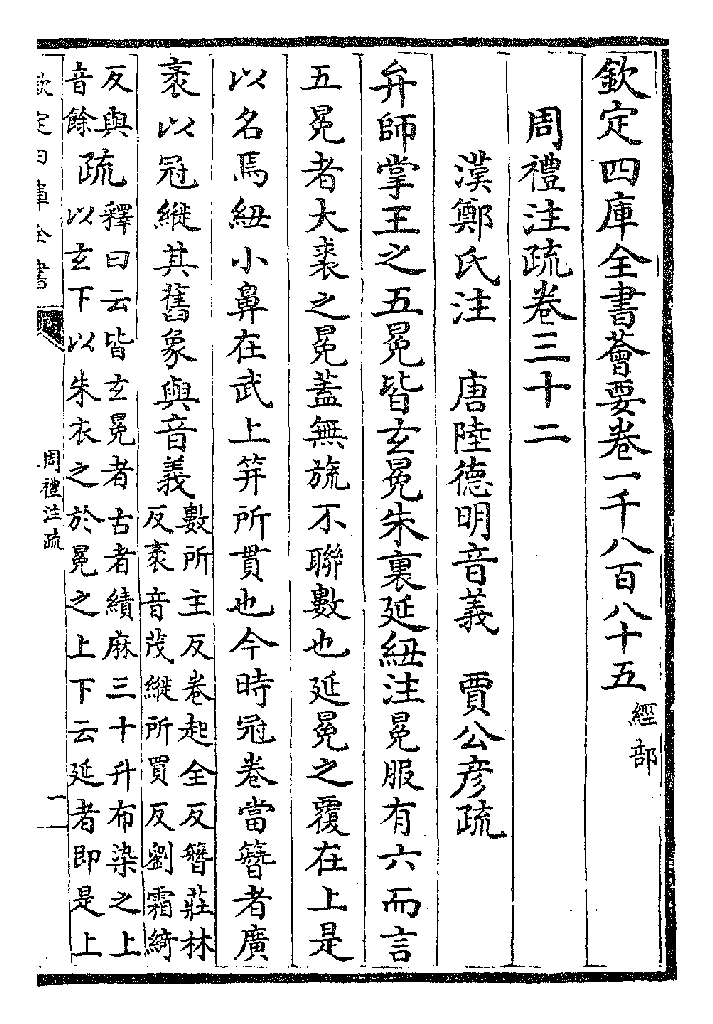 欽定四庫全書薈要卷一千八百八十五
經部
周禮注疏卷三十二
漢鄭氏注 唐陸德明音義 賈公彦疏
弁師掌王之五冕皆玄冕朱裏延紐注冕服有六而言
五冕者大裘之冕蓋無旒不聯數也延冕之覆在上是
以名焉紐小鼻在武上笄所貫也今時冠卷當簪者廣
袤以冠縰其舊象與音義
數所主反卷起全反簪莊林
反袤音茂縱所買反劉霜綺
反與
音餘
疏
釋曰云皆玄冕者古者績麻三十升布染之上
以玄下以朱衣之於冕之上下云延者即是上
欽定四庫全書
周禮注疏
一